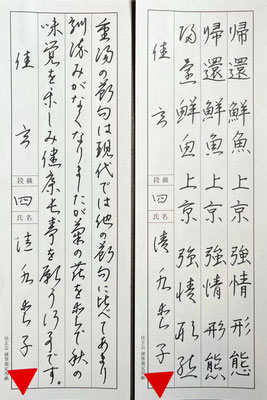 帰還 鮮魚 上京 強情 形態
帰還 鮮魚 上京 強情 形態
帰還 鮮魚 上京 強情 形態
佳 段級 四 氏名 清水 子
重陽の節句は現代では他の節句に比べてあまり
馴染みがなくなりましたが菊の花を愛で秋の
味覚を楽しみ健康長寿を願う行事です。
佳 段級 四 氏名 清水 子